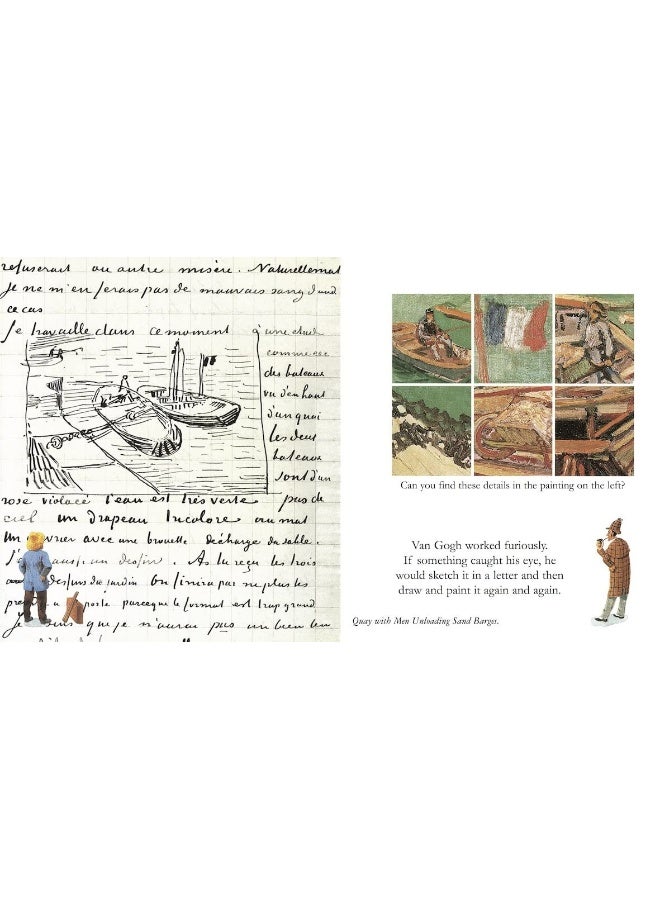 refuserait ou autre misère. Naturellement
Je ne m'en ferais pas de mauvais sang dans
ce cas
Je travaille dans ce moment à une etude
comme ça
des bateaux
vu d'en haut
d'un quai
les deux
bateaux
sont d'un
rose violacé l'eau est très verte pas de
ciel un drapeau tricolore au mat
Un ouvrier avec une brouette décharge du sable.
J'ai aussi un dessin. As tu reçu les trois
dessins du jardin On finira par ne plus les
a poste parceque le format est trop grand
Je que je n'aurai pas un bien
Can you find these details in the painting on the left?
Van Gogh worked furiously.
If something caught his eye, he
would sketch it in a letter and then
draw and paint it again and again.
Quay with Men Unloading Sand Barges.